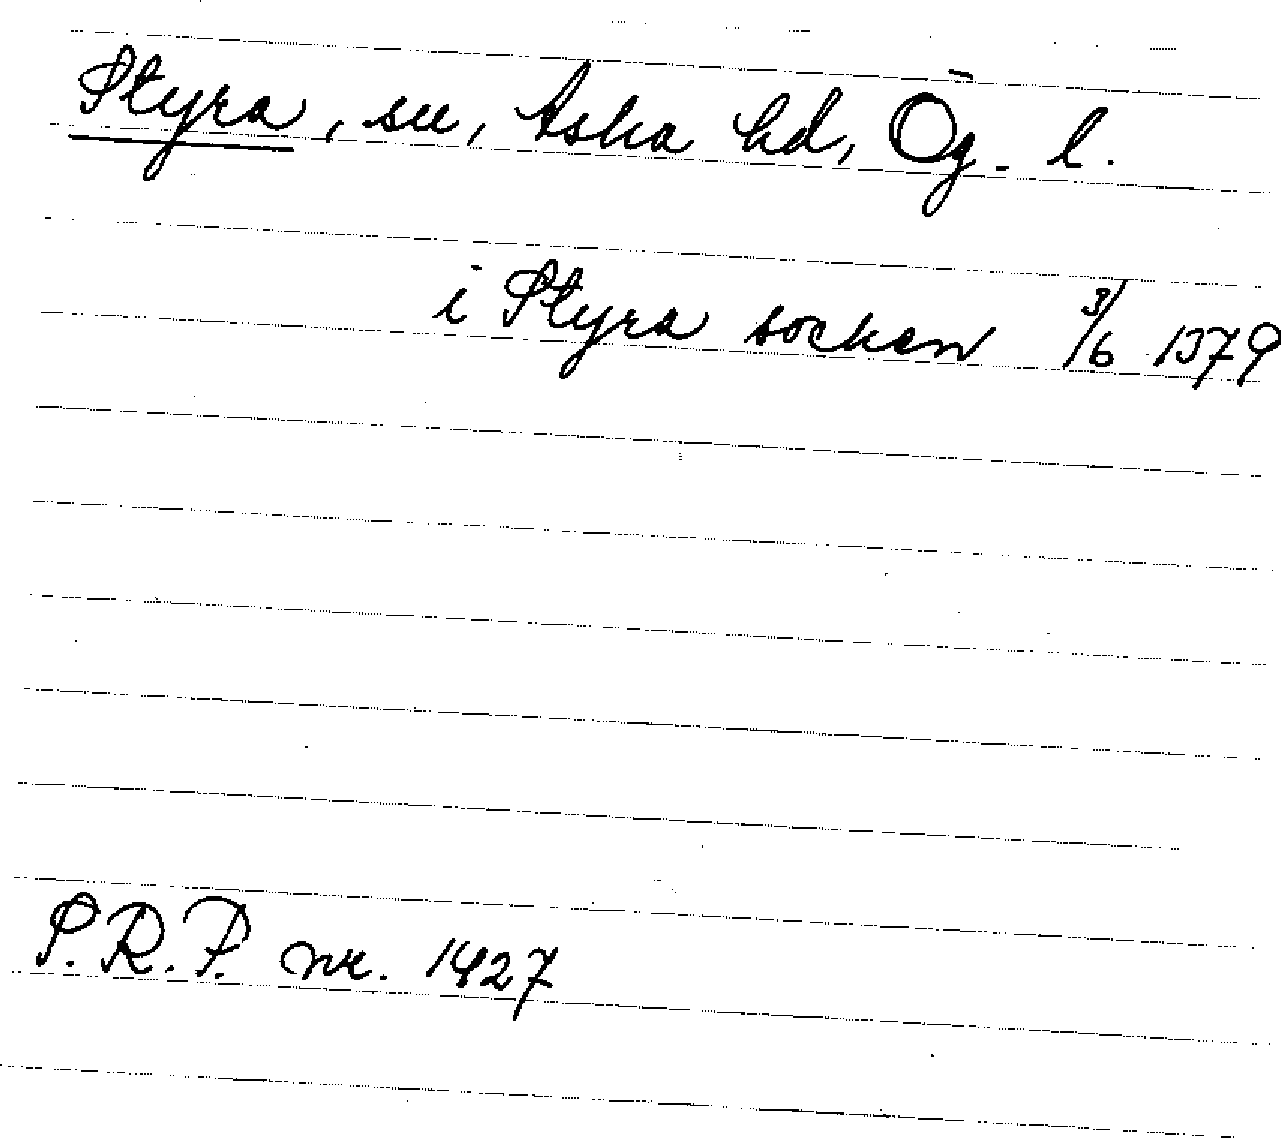 Styra, sn, Aska hd, Ög. l.
i Styra socken 3/6 1379
S.R.P. nr. 1427